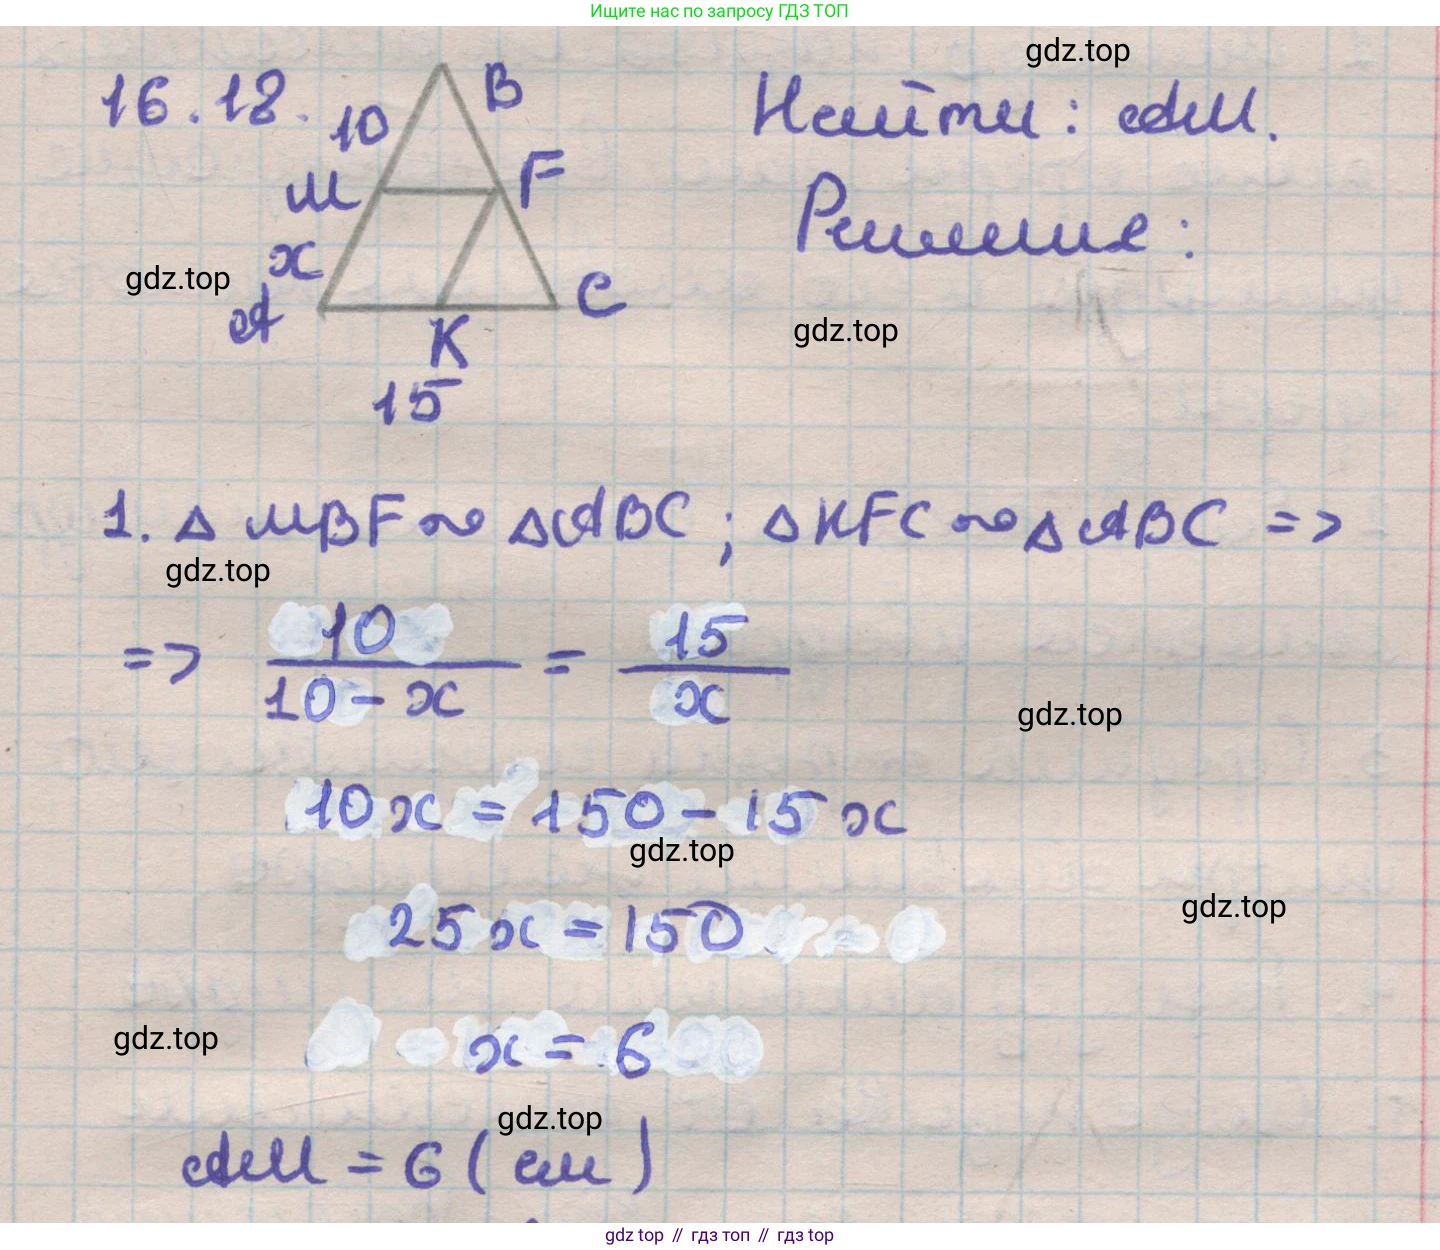 Ищите нас по запросу ГДЗ ТОП
gdz.top
16.18.
10
B
Найти: AM.
M
F
Решение:
x
gdz.top
A
C
K
gdz.top
15
1. △ MBF ~ △ABC ; △KFC ~ △ABC =>
gdz.top
=> 10/10-x = 15/x
gdz.top
10x = 150 - 15x
gdz.top
25x = 150
gdz.top
x = 6
gdz.top
gdz.top
AM = 6 (см)
gdz top // гдз топ // гдз top